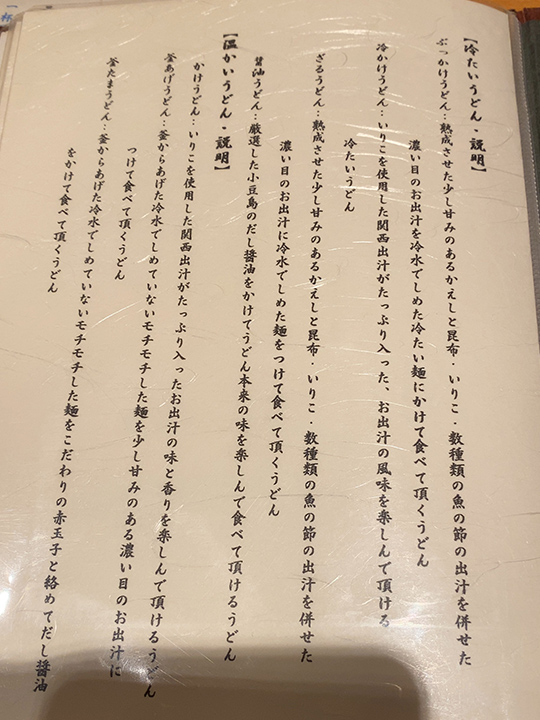 【冷たいうどん・説明】
ぶっかけうどん…熟成させた少し甘みのあるかえしと昆布・いりこ・数種類の魚の節の出汁を併せた
濃い目のお出汁を冷水でしめた冷たい麺にかけて食べて頂くうどん
冷かけうどん…いりこを使用した関西出汁がたっぷり入った、お出汁の風味を楽しんで頂ける
冷たいうどん
ざるうどん…熟成させた少し甘みのあるかえしと昆布・いりこ・数種類の魚の節の出汁を併せた
濃い目のお出汁に冷水でしめた麺をつけて食べて頂くうどん
醤油うどん…厳選した小豆島のだし醤油をかけてうどん本来の味を楽しんで食べて頂けるうどん
【温かいうどん・説明】
かけうどん…いりこを使用した関西出汁がたっぷり入ったお出汁の味と香りを楽しんで頂けるうどん
釜あげうどん…釜からあげた冷水でしめていないモチモチした麺を少し甘みのある濃い目のお出汁に
つけて食べて頂くうどん
釜たまうどん…釜からあげた冷水でしめていないモチモチした麺をこだわりの赤玉子と絡めてだし醤油
をかけて食べて頂くうどん